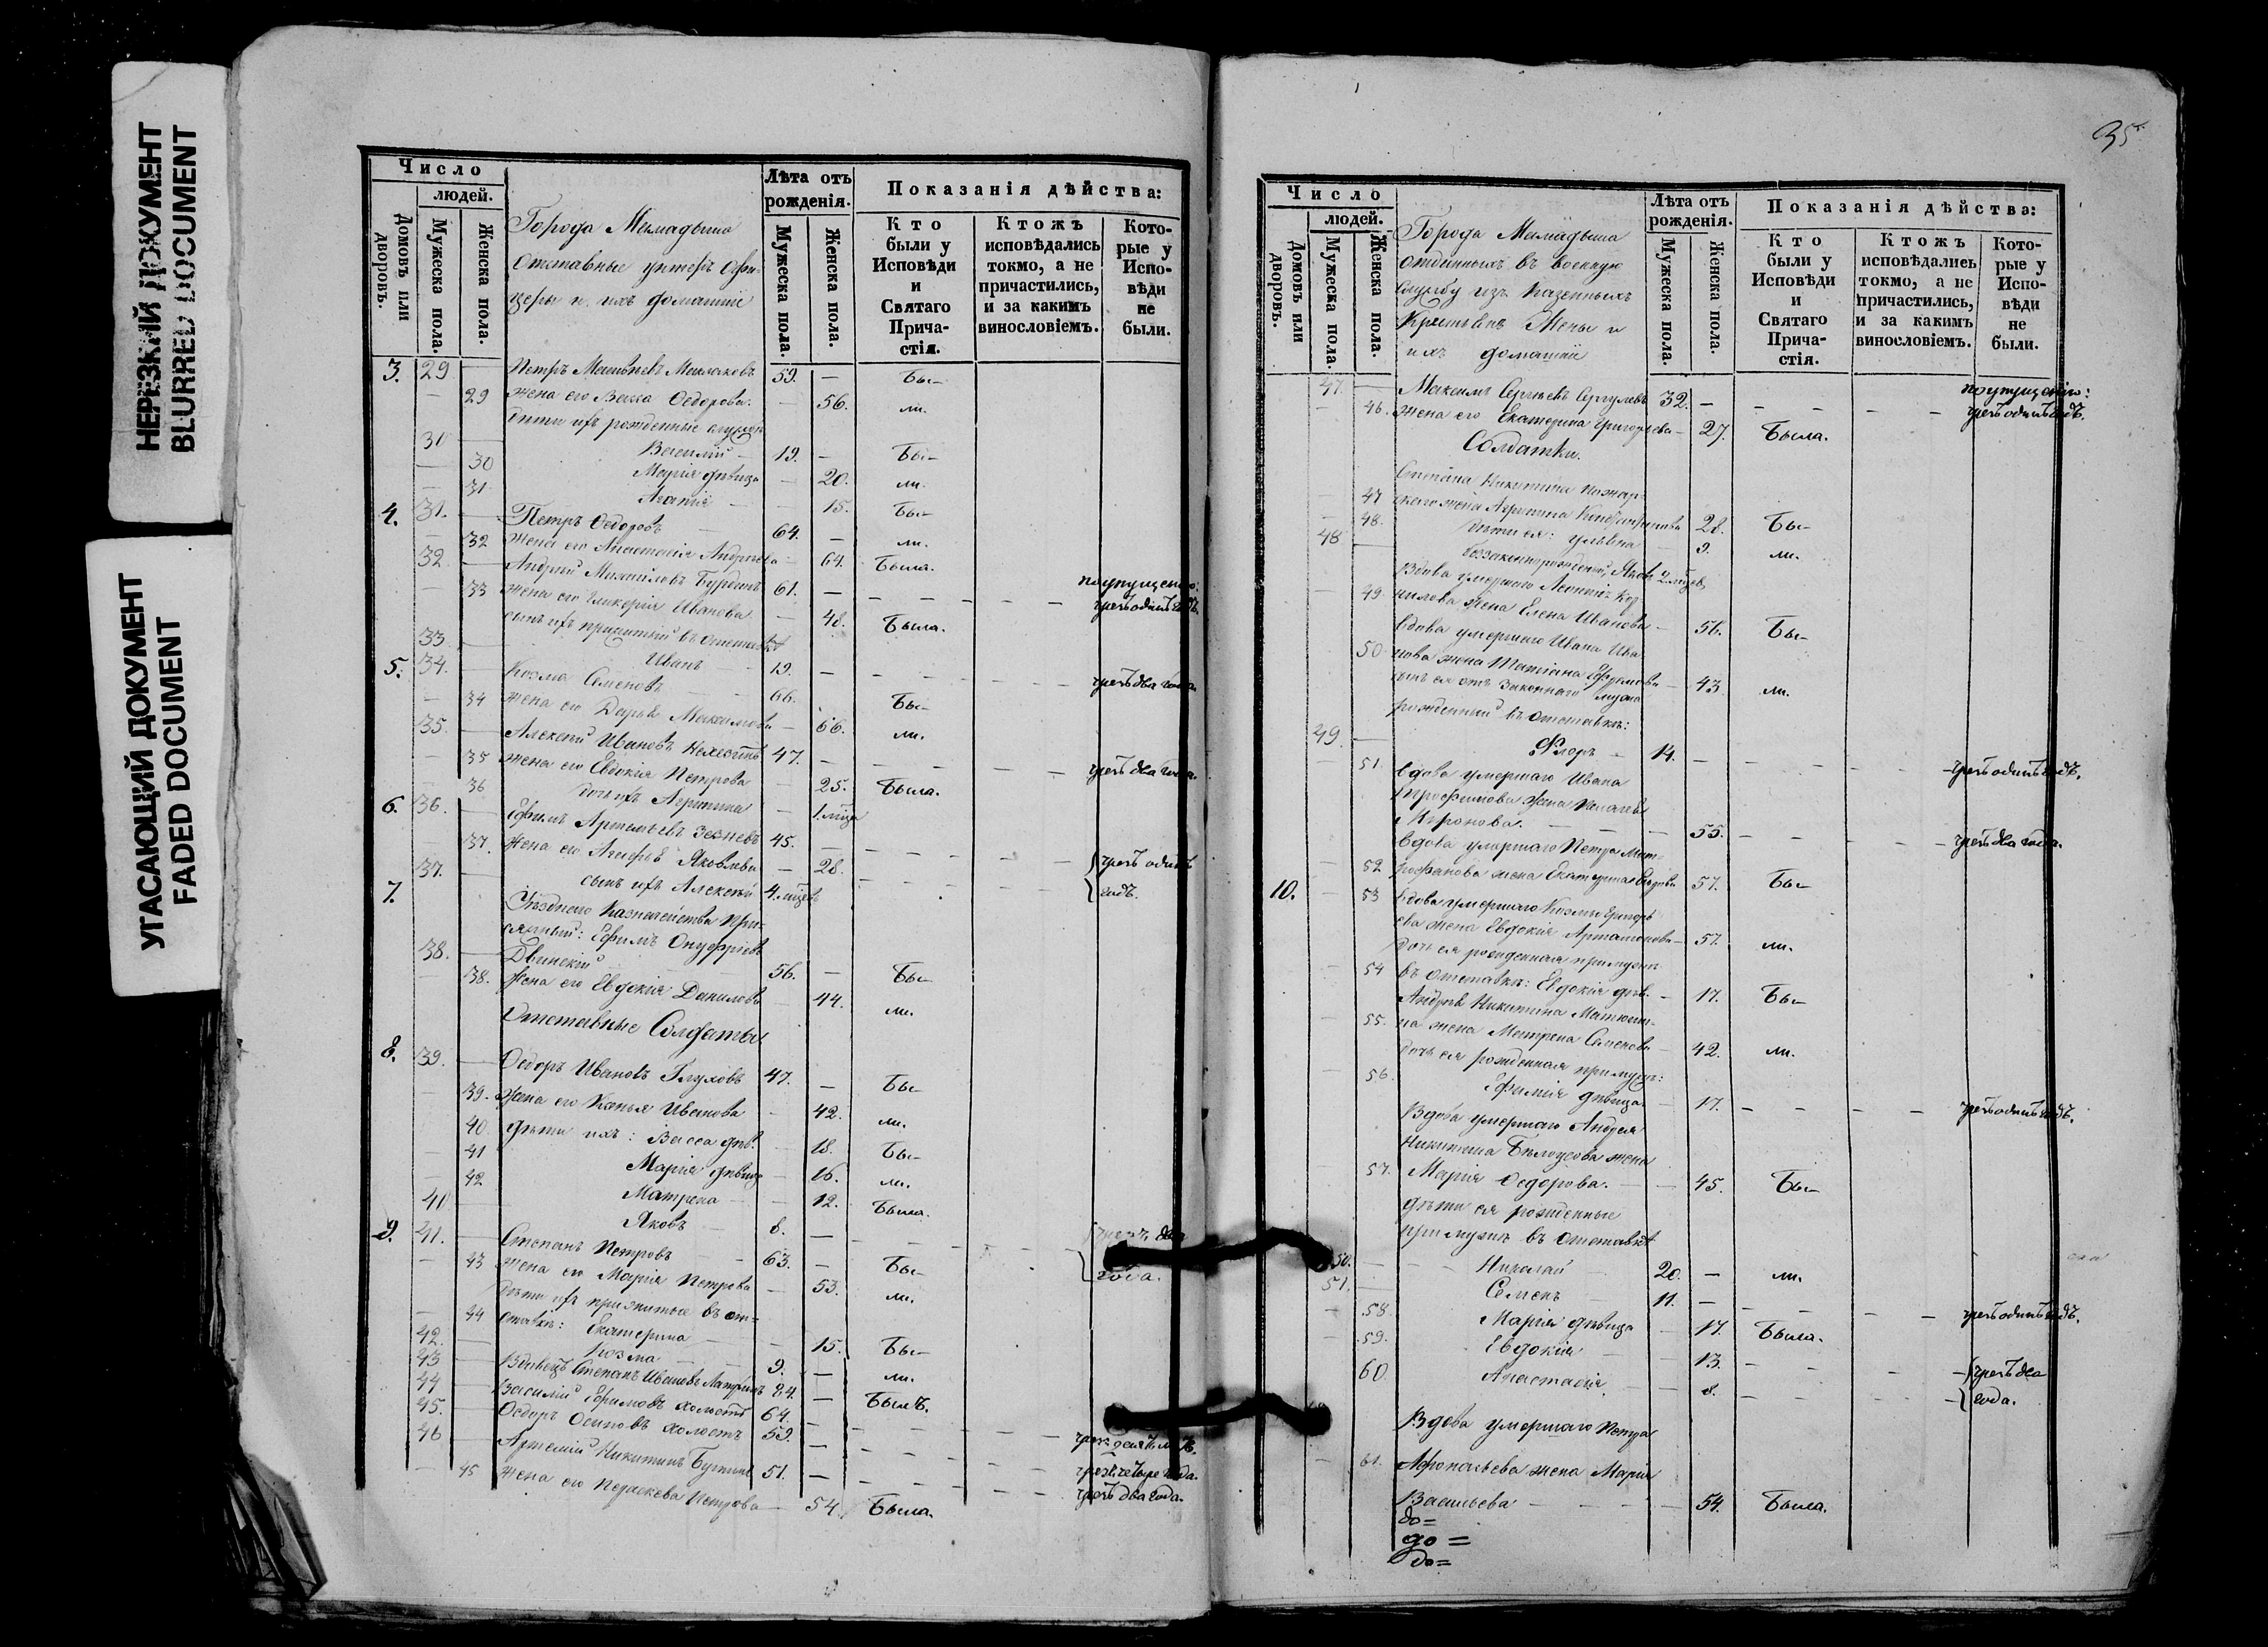 НЕРЕЗКИЙ ДОКУМЕНТ
BLURRED DOCUMENT
УГАСАЮЩИЙ ДОКУМЕНТ
FADED DOCUMENT
Число
людей.
Домовъ или дворовъ.
Мужеска пола.
Женска пола.
Города Мамадыша
отставные унтеръ офи-
церы и ихъ домашніе
Лѣта отъ рожденія.
Мужеска пола.
Женска пола.
Показанія дѣйства:
Кто были у Исповѣди и Святаго Прича-стія.
Ктожъ исповѣдались токмо, а не причастились, и за какимъ винословіемъ.
Кото-рые у Испо-вѣди не были.
3. 29 — Петръ 59. — Бы-
— 29 жена его Васса Ѳедорова — 56. ли.
дѣти ихъ рожденные
30 — Василий — 19. — Бы-
— 30 Марія дѣвица — 20. ли.
— 31 Агапія — 15. Бы-
4. 31. — Петръ Ѳедоровъ 64. — ли.
— 32 жена его Анастасія Андреева — 64. Была.
32 — Андрей Михаиловъ 61. — по упущенію: чрезъ одинъ годъ.
— 33 жена его Гликерія Иванова — 48. Была.
сынъ ихъ прижитый въ отставкѣ
33 — Иванъ 19. — чрезъ два года.
5. 34. — Козма Семеновъ 66. Бы-
— 34 жена его Дарья Максимова — 66. ли.
35. — Алексей Ивановъ 47. — чрезъ два года.
— 35 жена его Евдокія Петрова — 25. Была.
36 дочь ихъ Агрипина — 1. мѣсяца
6. 36. — Ефимъ Артемьевъ 45. —
— 37. жена его Яковлева — 28. чрезъ одинъ
37. — сынъ ихъ Алексей 4. мѣсяцев годъ.
7. Уѣзднаго Казначейства при-
сяжный: Ефимъ Онуфріевъ
38. — Двинскій 56. — Бы-
— 38. жена его Евдокія Данилова — 44. ли.
Отставные Солдаты
8. 39. — Ѳедоръ Ивановъ Глуховъ 47. — Бы-
— 39. жена его Ксенья Иванова — 42. ли.
40 дѣти ихъ: Васса дѣв. — 18. Бы-
41 Марія дѣвица — 16. ли.
42 Матрена — 12. Была.
40 — Яковъ 8. — чрезъ два
9. 41. — Степанъ Петровъ 63. — Бы- года.
— 43 жена его Марія Петрова — 53. ли.
дѣти ихъ прижитые въ от-
— 44 ставкѣ: Екатерина — 15. Бы-
42. — Козма 9. — ли.
43 — Вдовецъ Степанъ Ивановъ 84. — Былъ.
44 — Василій Ефимовъ холостъ 64. —
45. — Ѳедоръ Осиповъ холостъ 59. — чрезъ четыре года.
46 — Артемій Никитинъ 51. — чрезъ два года.
— 45 жена его Параскева Петрова — 54. Была.
35
Число
людей.
Домовъ или дворовъ.
Мужеска пола.
Женска пола.
Города Мамадыша
отданныхъ въ военную
службу изъ казенныхъ
Крестьянъ Жены и
ихъ домашніе
Лѣта отъ рожденія.
Мужеска пола.
Женска пола.
Показанія дѣйства:
Кто были у Исповѣди и Святаго Прича-стія.
Ктожъ исповѣдались токмо, а не причастились, и за какимъ винословіемъ.
Кото-рые у Испо-вѣди не были.
47. — Максимъ Сергѣевъ 32. — по упущенію: чрезъ одинъ годъ.
— 46. жена его Екатерина Григорьева — 27. Была.
Солдатки.
Степана Никитина
— 47 жена Агрипина 28. Бы-
48. дѣти ея: Ульяна 9. ли.
48 — беззаконнорожденный Яковъ 2. мѣсяцев
Вдова умершаго
49. жена Елена Иванова — 56. Бы-
Вдова умершаго Ивана Ива-
50 нова жена Татіана — 43. ли.
сынъ ея отъ законнаго мужа
рожденный въ отставкѣ:
49. — Флоръ — 14. — чрезъ одинъ годъ.
51. Вдова умершаго Ивана
Трофимова жена
Миронова. — 55. чрезъ два года.
Вдова умершаго Петра Мит-
52 рофанова жена Екатерина 57. Бы-
10. 53 Вдова умершаго Козмы Григорь-
ева жена Евдокія Артамонова — 57. ли.
дочь ея рожденная при мужѣ
54 въ отставкѣ: Евдокія дѣв. — 17. Бы-
Андрея Никитина
55. жена Матрена Семенова — 42. ли.
дочь ея рожденная при мужѣ:
56. Ефимія дѣвица — 17. чрезъ одинъ годъ.
Вдова умершаго Андрея
Никитина Бѣлоусова жена
57. Марія Ѳедорова. — 45. Бы-
дѣти ея рожденные
при мужѣ въ отставкѣ
50. — Николай 20. — ли.
51. — Семенъ 11. — чрезъ одинъ годъ.
58. Марія дѣвица — 17. Была.
59. Евдокія — 13. чрезъ два
60. Анастасія — 8. года.
Вдова умершаго Петра
61. Афонасьева жена Марія
Васильева — 54. Была.
до=
до=
до=